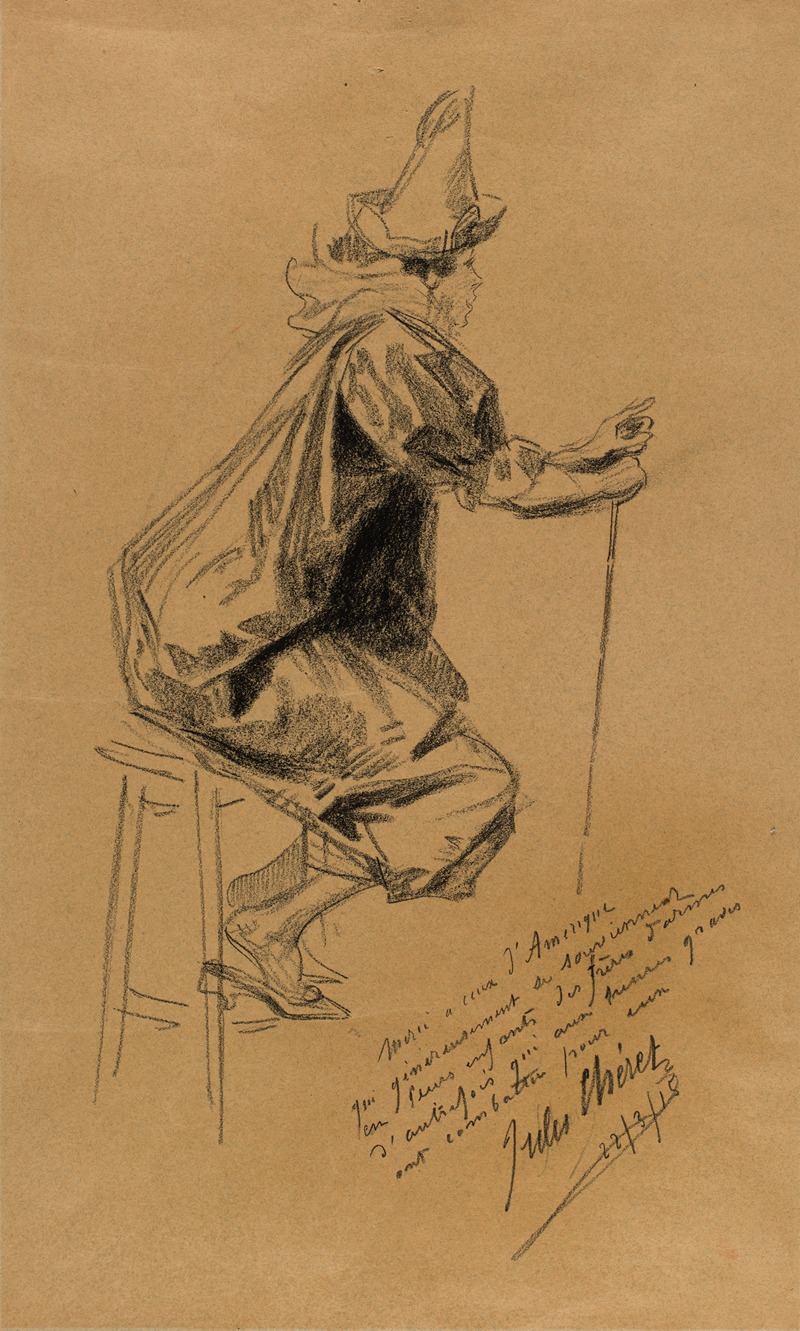 Merci à ceux d'Amérique
qui généreusement se souviennent
en leurs enfants des frères d'armes
d'autrefois qui aux heures graves
ont combattu pour eux
Jules Chéret
22/3/18